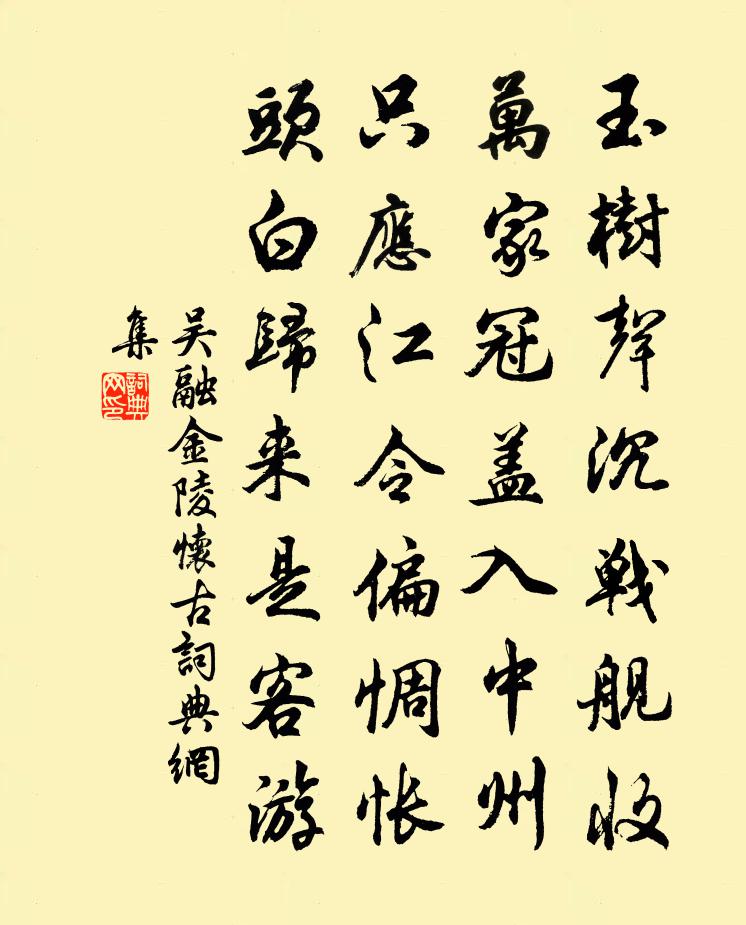 玉樹聲沉戰舰收
萬家冠盖入中州
只應江令偏惆怅
頭白歸来是客游
吴融金陵懷古詞典網
集
詞典网印